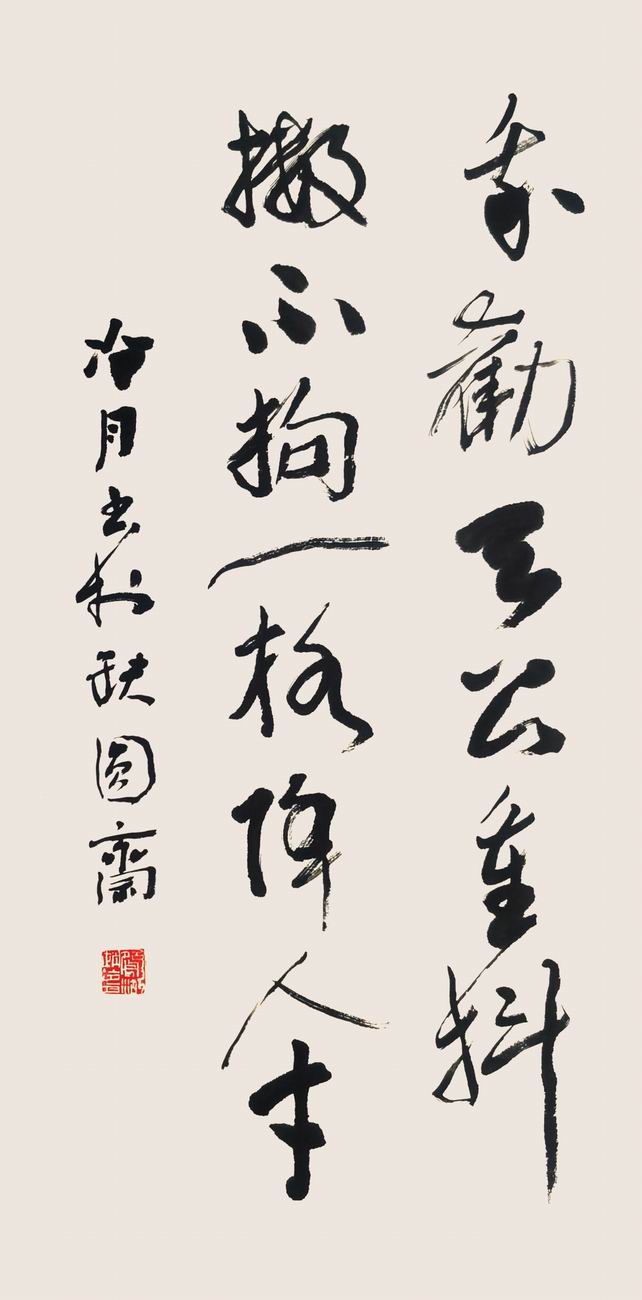 我劝天公重抖
擞不拘一格降人才
冷月书於缺圆斋